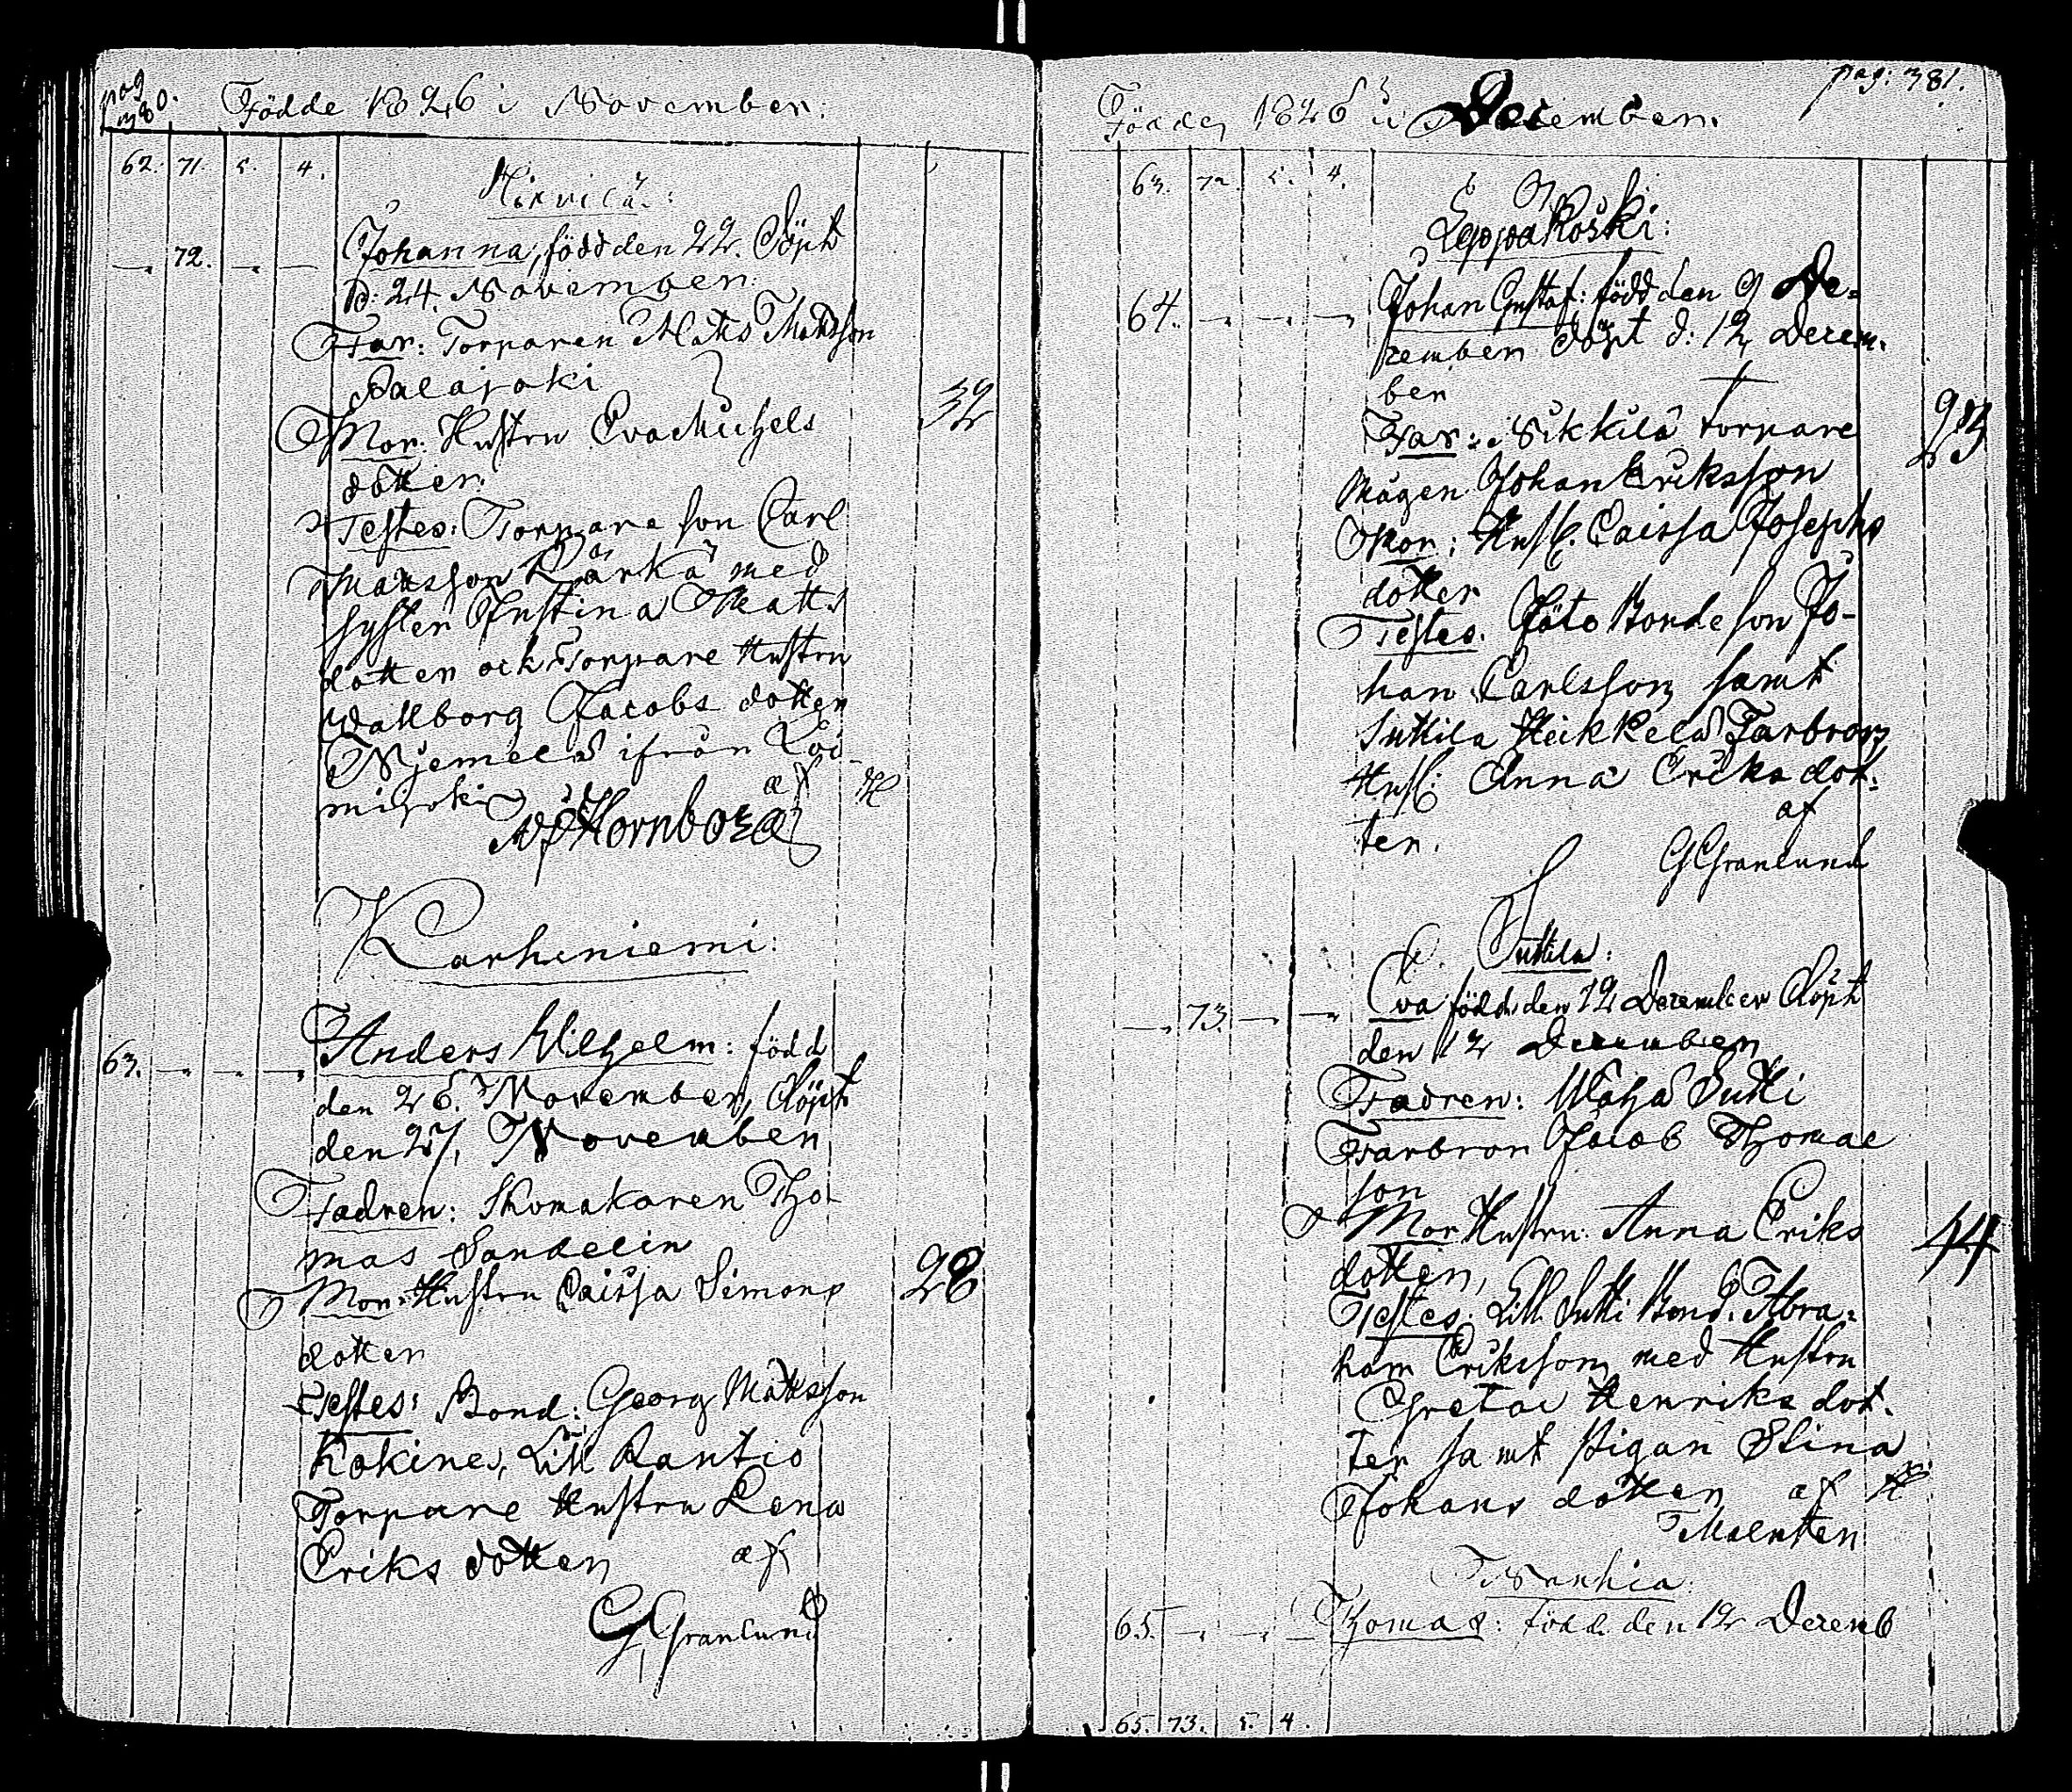 pag 380.
Födde 1826 i November:
62. 71. 5. 4.
Hirvilä:
72. Johanna, född den 22. Döpt
d: 24. November:
Far: Torparen Matts Mattsson
Palajoki
Mor: Hustru Eva Michels 32
dotter.
Testes: Torpare son Carl
Matsson Kärkä med
syster Justina Matts
dotter och Torpare Hustru
Wallborg Jacobs dotter
Njemelä ifrån Loi-
mijoki af
Hornborg
Karheniemi:
63. Anders Wilhelm: född
den 26. November, Döpt
den 27, November
Fadren: Skomakaren Tho-
mas Sandelin
Mor: Hustru Caissa Simons 28
dotter
Testes: Bond: Georg Mattsson
Kokine, Lill Rantio
Torpare Hustru Lena
Eriks dotter af
G Granlund
pag: 381.
Födde 1826 i December.
63. 72. 5. 4.
Leppäkoski:
64. Johan Gustaf: född den 9 De=
cember Döpt d: 12 Decem.
ber
Far: Nikkilä torpare 23
Mågen Johan Eriksson
Mor: Hust. Caissa Josephs
dotter
Testes. Bonde son Jo-
han Carlsson samt
Suttila Heikkelä Farbrors
Hust: Anna Eriks dot-
ter. af
G Granlund
Suttila:
73. Eva född den 12 December Döpt
den 12 December
Fadren: Wähä Sutti
Farbror Jacob Thomae
son
Mor Hustru: Anna Eriks 44
dotter,
Testes: Lill Sutti Bond: Abra=
ham Eriksson med Hustru
Greta Henriks dot.
ter samt Pigan Stina
Johans dotter af
Malmsten
Nanhia:
65. Thomas: född den 12 Decemb
65. 73. 5. 4.